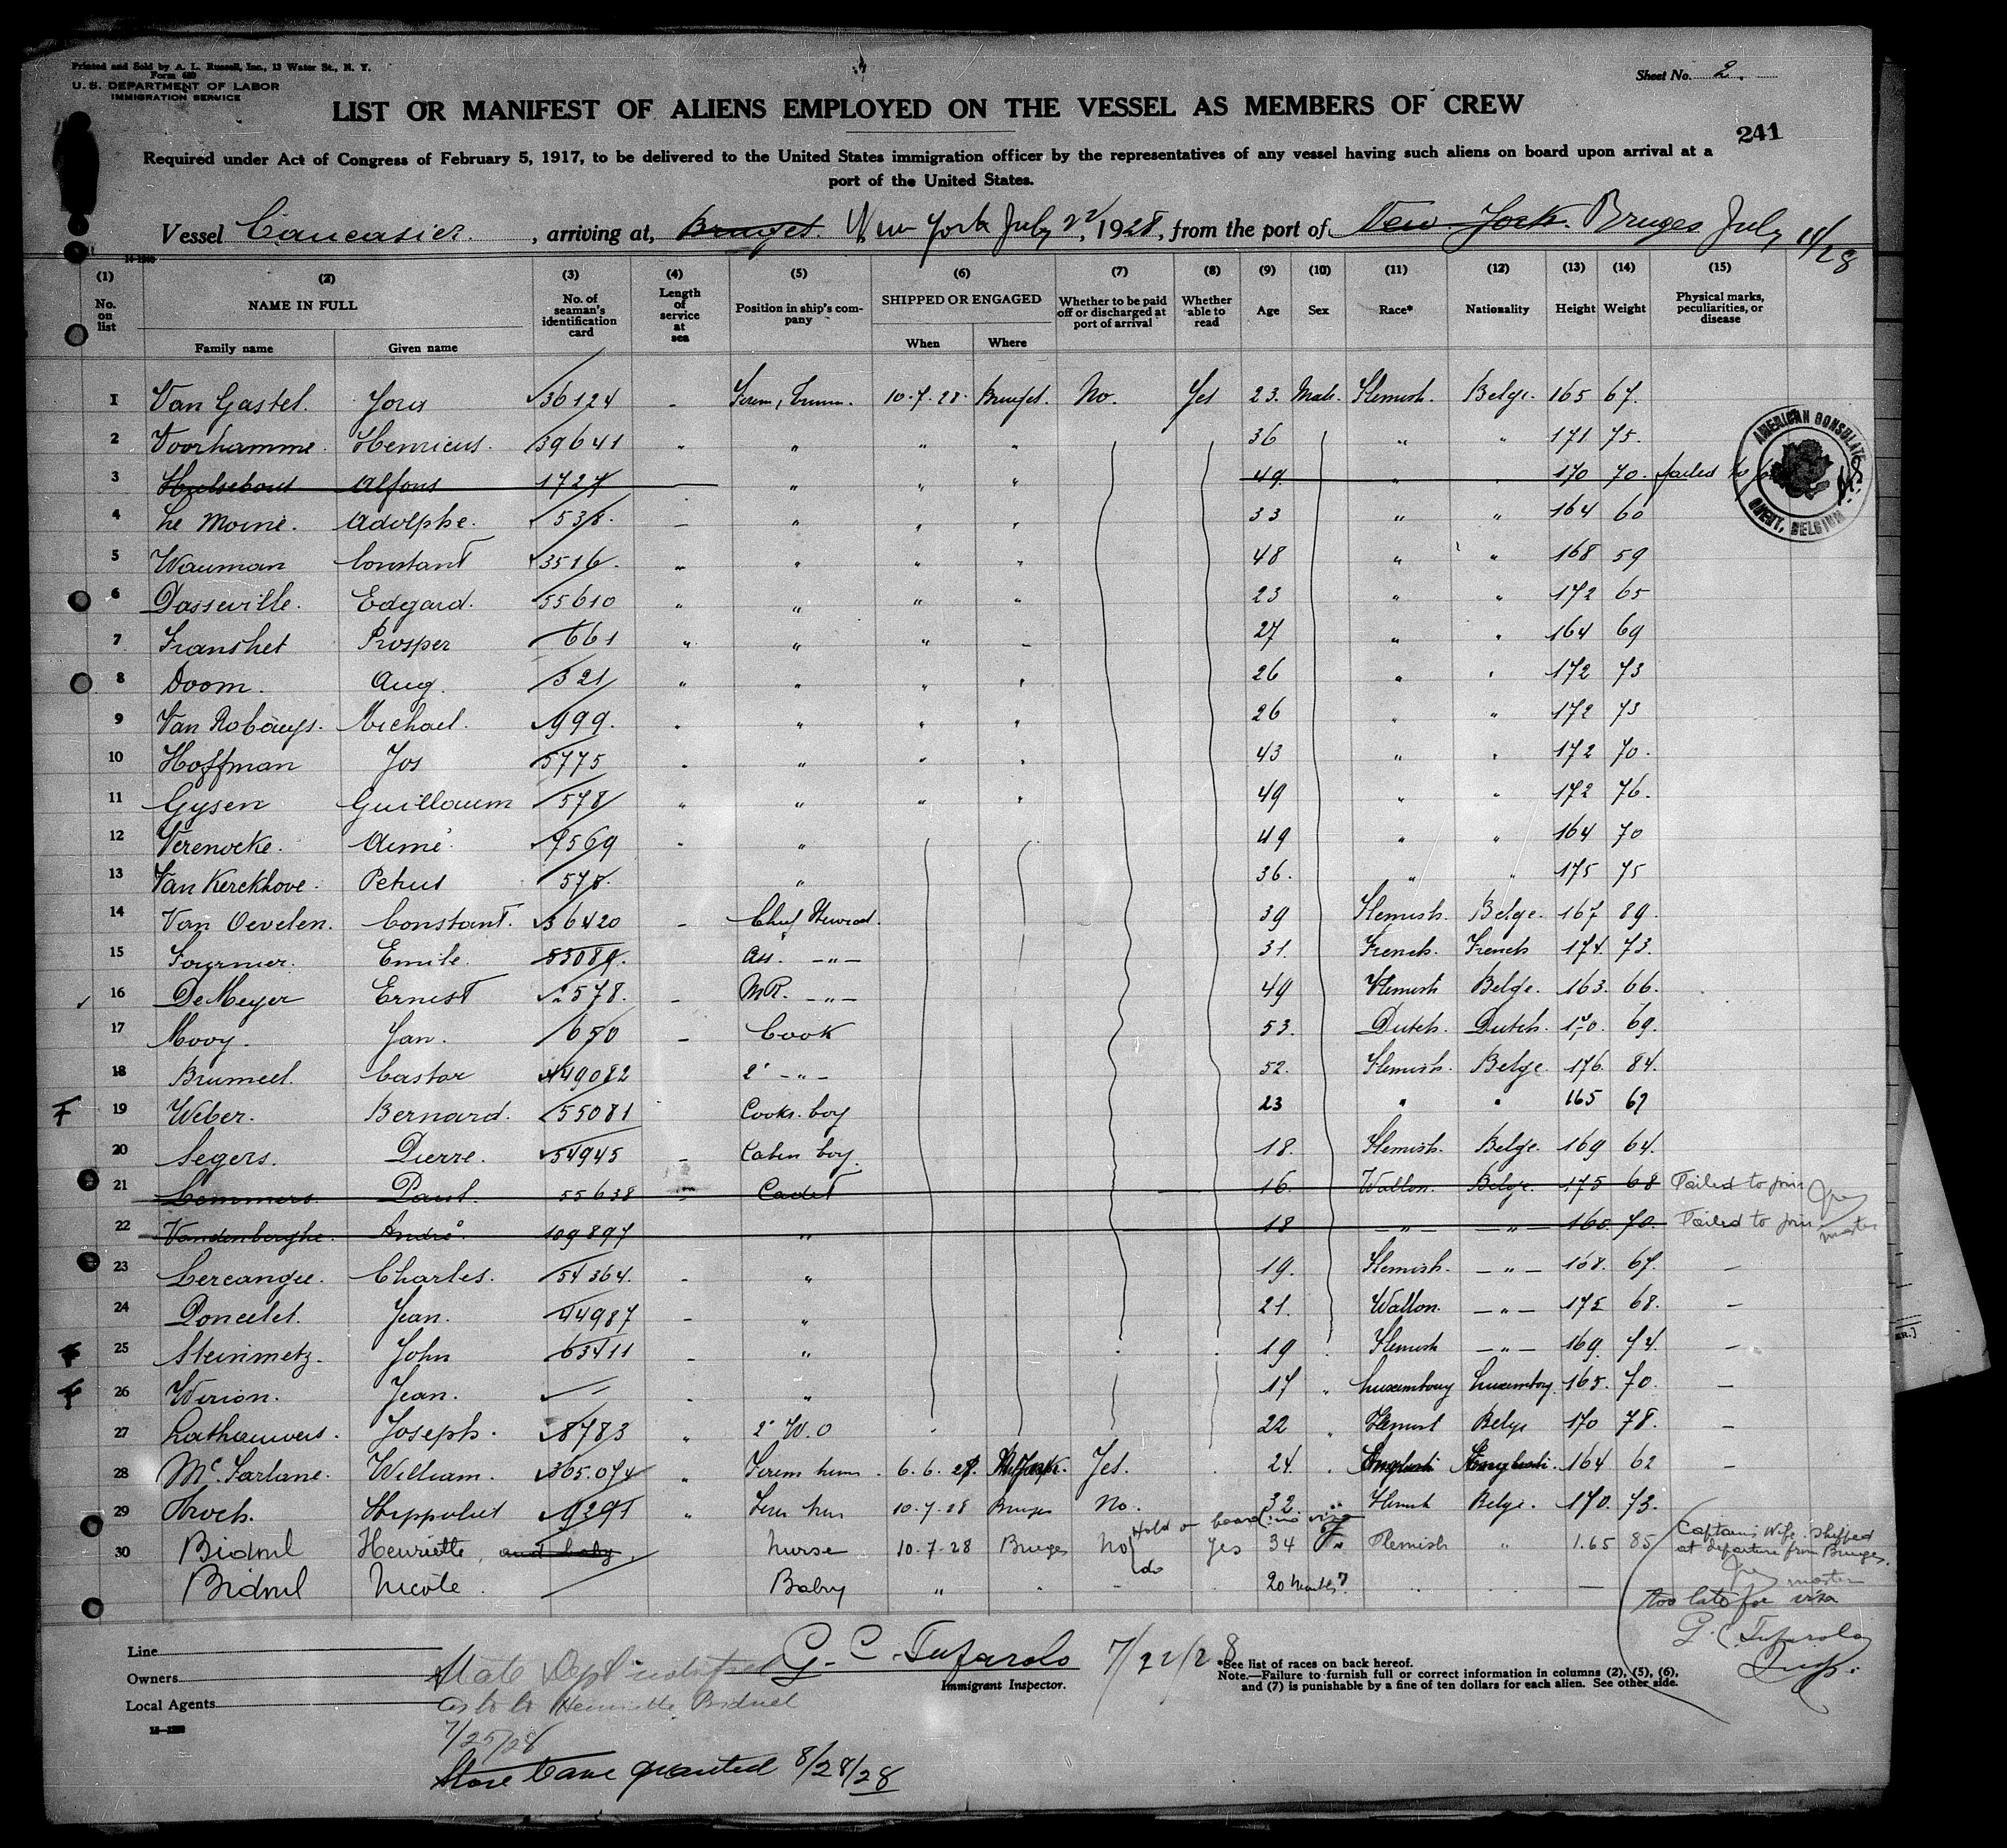 Printed and Sold by A. L. Russell, Inc., 13 Water St., N. Y.
Form 680
U. S. DEPARTMENT OF LABOR
IMMIGRATION SERVICE
Sheet No. 2.
LIST OR MANIFEST OF ALIENS EMPLOYED ON THE VESSEL AS MEMBERS OF CREW
241
Required under Act of Congress of February 5, 1917, to be delivered to the United States immigration officer by the representatives of any vessel having such aliens on board upon arrival at a
port of the United States.
Vessel Caucasier, arriving at, Bruges. New York July 22, 1928, from the port of New York. Bruges July 11/28
(1) (2) (3) (4) (5) (6) (7) (8) (9) (10) (11) (12) (13) (14) (15)
No. on list NAME IN FULL Family name Given name No. of seaman's identification card Length of service at sea Position in ship's company SHIPPED OR ENGAGED When Where Whether to be paid off or discharged at port of arrival Whether able to read Age Sex Race* Nationality Height Weight Physical marks, peculiarities, or disease
1 Van Gastel. Joris 36124 - 10.7.28 Bruges. No. Yes 23. Male. Flemish. Belge. 165 67.
2 Voorhamme. Henricus. 39641 " " " " 36 " " 171 75.
3 Hulsebout Alfons 1727 " " " 49. " " 170 70. failed to
4 Le Moine. Adolphe. 538. - " " " 33 " " 164 60
5 Wauman Constant 3516. " " " " 48 " " 168 59
6 Dasseville. Edgard. 55610 " " " " 23 " " 172 65
7 Franshet Prosper 661 " " " - 27 " " 164 69
8 Doom. Aug. 321 " " " " 26 " " 172 73
9 Van Robays. Michael. 999. " " " " 26 " " 172 73
10 Hoffman Jos 5775 " " " " 43 " " 172 70.
11 Gysen Guillaum 578 " " " " 49 " " 172 76.
12 Verenocke. Aimé. 7569 " " 49 " " 164 70
13 Van Kerckhove. Petrus 578. " 36. " " 175 75
14 Van Oevelen. Constant. 36420 - Chief Steward. 39 Flemish. Belge. 167 89.
15 Fournier. Emile. 53089. Ass. - " - 31. French. French 174. 73.
16 De Meyer Ernest 2578. - MR. - " - 49 Flemish Belge. 163. 66.
17 Mooy. Jan. 650 - Cook 53. Dutch. Dutch. 170. 69.
18 Brumeel. Castor 49082 2' - " - 52. Flemish. Belge. 176. 84.
F 19 Weber. Bernard. 55081 Cooks. boy 23 " " 165 67
20 Segers. Pierre. 54945 - Cabin boy. 18. Flemish. Belge. 169 64.
21 Lemmers Paul. 55638 - Cadet 16. Wallon. Belge. 175 68 Failed to join
22 Vandenberghe. André. 109897 " 18 - " - - " - 160. 70. Failed to join master
23 Lercangee. Charles. 54364. - " 19. Flemish. - " - 168. 67. -
24 Poncelet. Jean. 44987 - " 21. Wallon. - " - 175 68. -
F 25 Steinmetz. John 63411 - " 19 Flemish - " - 169. 74. -
F 26 Wirion. Jean. - " 17 " Luxembourg Luxemborg. 165. 70. -
27 Lathauwers. Joseph. 8783 " 2' W.O 22 " Flemish Belge 170 78. -
28 Mc Farlane. William. 365.074 " 6.6.28. Yes. 24. " 164 62 -
29 Hippoliet 9291 " 10.7.28 Bruges No. 32. " Flemish Belge. 170. 73.
Hold on board: no visa
30 Bidnel Henriette, and baby. Nurse 10.7.28 Bruges No Yes 34 F. Flemish " 1.65 85 Captain's Wife. Shipped at departure from Bruges.
Bidnel Nicole. Baby " " - do 20 months - master
too late for visa
G. C. Tufarolo
Insp.
AMERICAN CONSULATE
GHENT, BELGIUM
Line
Owners
Local Agents
State Dept notified
as to Henriette Bidnel
7/25/28
G. C. Tufarolo 7/22/28
Immigrant Inspector.
*See list of races on back hereof.
Note.—Failure to furnish full or correct information in columns (2), (5), (6),
and (7) is punishable by a fine of ten dollars for each alien. See other side.
granted 8/28/28